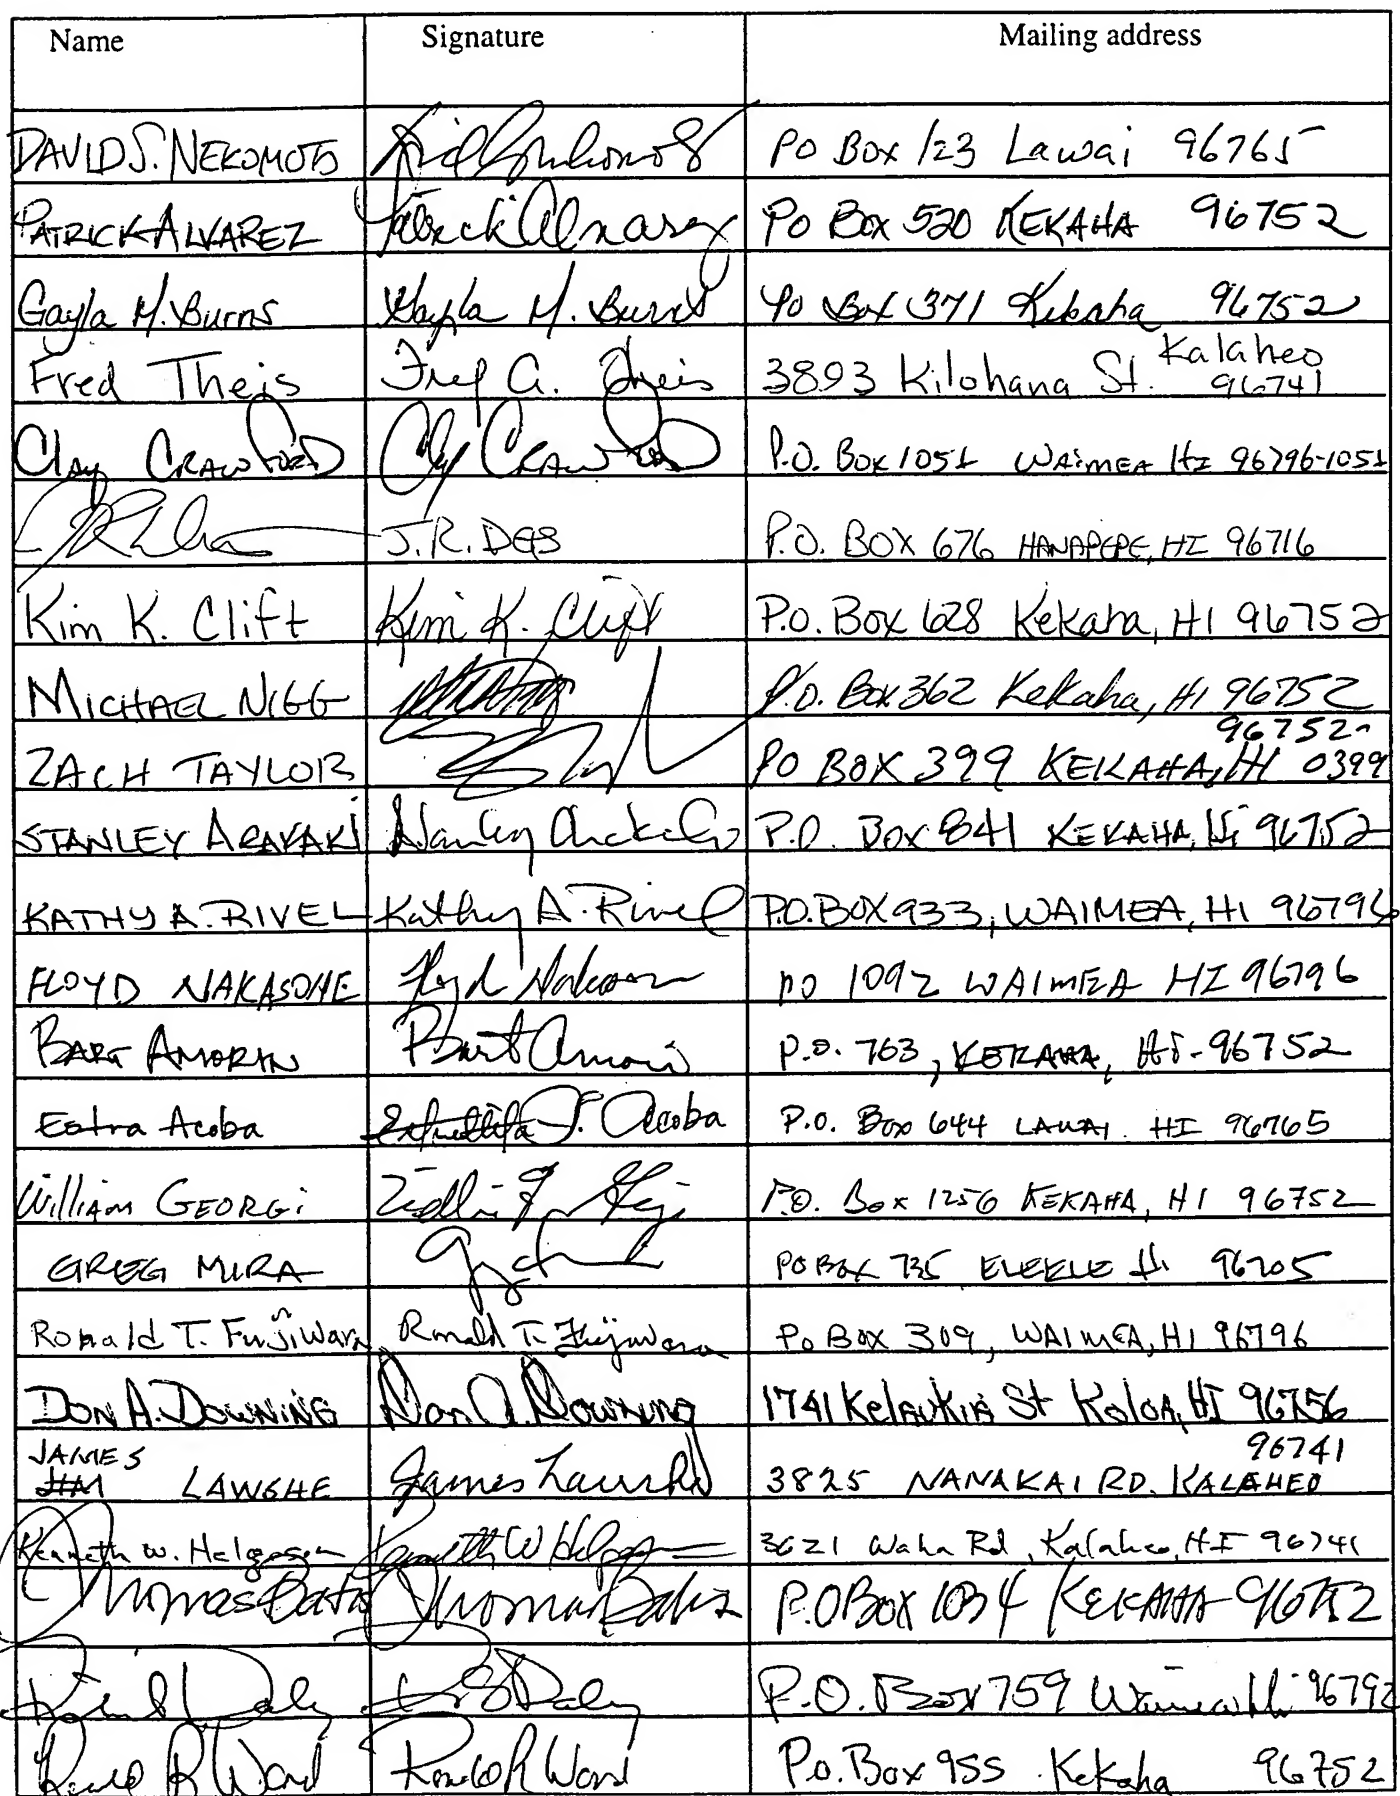 Name Signature Mailing address
DAVID S. NEKOMOTO PO Box 123 Lawai 96765
PATRICK ALVAREZ Patrick Alvarez PO Box 520 KEKAHA 96752
Gayla M. Burns Gayla M. Burns PO Box 371 Kekaha 96752
Fred Theis Fred A. Theis 3893 Kilohana St. Kalaheo 96741
Clay CRAWFORD Clay CRAWFORD P.O. Box 1051 WAIMEA HI 96796-1051
J.R. DEGS P.O. BOX 676 HANAPEPE, HI 96716
Kim K. Clift Kim K. Clift P.O. Box 628 Kekaha, HI 96752
MICHAEL NIGG P.O. Box 362 Kekaha, HI 96752
ZACH TAYLOR PO BOX 399 KEKAHA, HI 96752-0399
STANLEY ARAKAKI Stanley Arakaki P.O. Box 841 KEKAHA, Hi 96752
KATHY A. RIVEL Kathy A. Rivel P.O. BOX 933, WAIMEA, HI 96796
FLOYD NAKASONE Floyd Nakasone PO 1092 WAIMEA HI 96796
BART AMORIN Bart Amorin P.O. 763, KEKAHA, HI- 96752
Estra Acoba J. Acoba P.O. Box 644 LAWAI. HI 96765
William GEORGi P.O. Box 1256 KEKAHA, HI 96752
GREG MURA PO Box 735 ELEELE Hi 96705
Ronald T. Fujiwara Ronald T. Fujiwara Po Box 309, WAIMEA, HI 96796
DON A. DOWNING Don A. Downing 1741 Kelaukia St Koloa, HI 96756
JAMES LAWSHE James Lawshe 3825 NANAKAI RD. KALAHEO 96741
Kenneth W. Helgeson Kenneth W Helgeson 3621 Waha Rd, Kalaheo, HI 96741
Thomas Batis Thomas Batis P.O Box 1034 KEKAHA 96752
Daley Daley P.O. Box 759 Waimea Hi 96792
R Ward R Ward P.O. Box 955 Kekaha 96752